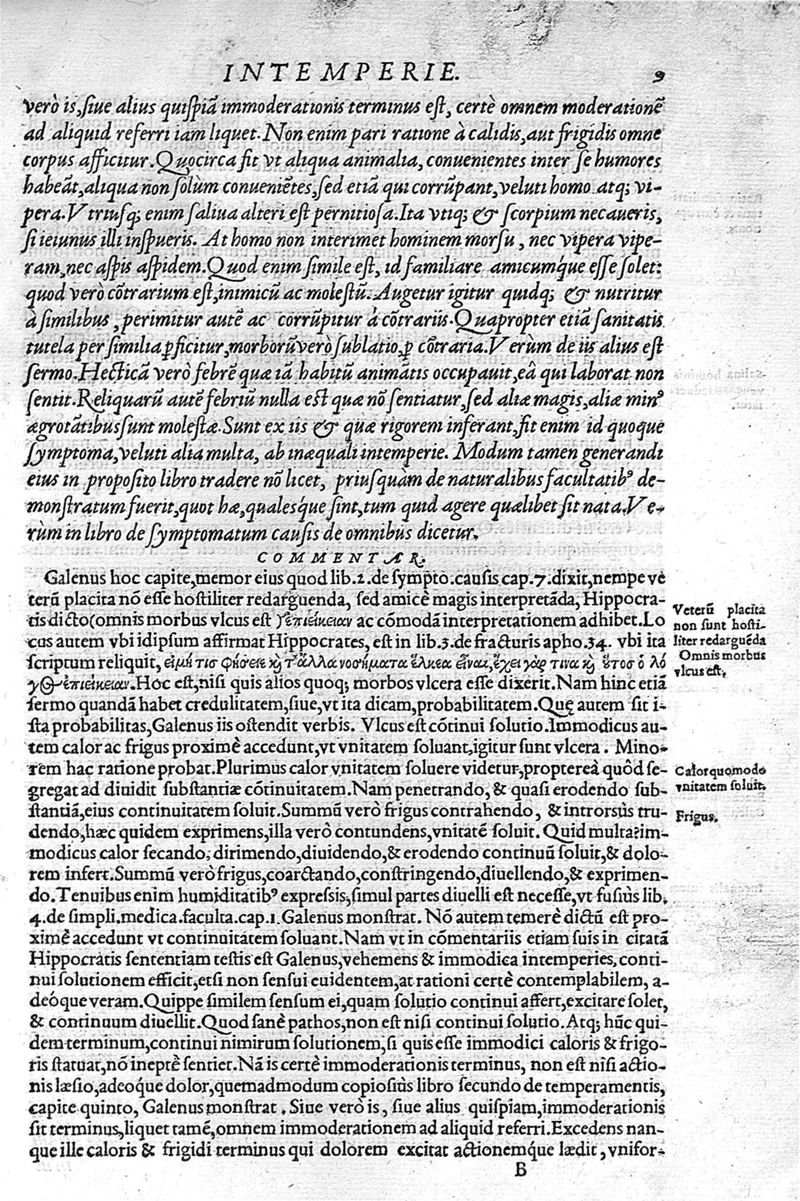 INTEMPERIE. 9
verò is, siue alius quispiā immoderationis terminus est, certè omnem moderationē
ad aliquid referri iam liquet. Non enim pari ratione à calidis, aut frigidis omne
corpus afficitur. Quocirca fit vt aliqua animalia, conuenientes inter se humores
habeāt, aliqua non solùm conueniētes, sed etiā qui corrūpant, veluti homo atq; vi-
pera. Vtriusq; enim saliua alteri est pernitiosa. Ita vtiq; & scorpium necaueris,
si ieiunus illi inspueris. At homo non interimet hominem morsu, nec vipera vipe-
ram, nec aspis aspidem. Quod enim simile est, id familiare amicumq́ue esse solet:
quod verò cōtrarium est, inimicū ac molestū. Augetur igitur quidq; & nutritur
à similibus, perimitur autē ac corrūpitur à cōtrariis. Quapropter etiā sanitatis
tutela per similia ꝑficitur, morborū verò sublatio, ꝑ cōtraria. Verùm de iis alius est
sermo. Hecticā verò febrē quæ iā habitū animātis occupauit, eā qui laborat non
sentit. Reliquarū autē febriū nulla est quæ nō sentiatur, sed aliæ magis, aliæ minꝰ
ægrotātibus sunt molestæ. Sunt ex iis & quæ rigorem inferant, fit enim id quoque
symptoma, veluti alia multa, ab inæquali intemperie. Modum tamen generandi
eius in proposito libro tradere nō licet, priusquàm de naturalibus facultatibꝰ de-
monstratum fuerit, quot hæ, qualesque sint, tum quid agere quælibet sit nata. Ve-
rùm in libro de symptomatum causis de omnibus dicetur.
COMMENTAR.
Galenus hoc capite, memor eius quod lib. 2. de sympto. causis cap. 7. dixit, nempe ve
terū placita nō esse hostiliter redarguenda, sed amicè magis interpretāda, Hippocra-
tis dicto (omnis morbus vlcus est ἐπιείκειαν ac cōmodā interpretationem adhibet. Lo
cus autem vbi idipsum affirmat Hippocrates, est in lib. 3. de fracturis apho. 34. vbi ita
scriptum reliquit, εἰ μή τις φήσειε κ̀ τ' ἄλλα νοσήματα ἕλκεα εἶναι, ἔχει γάρ τινα κ̀ ὗτος ὁ λό
γος ἐπιείκειαν. Hoc est, nisi quis alios quoq; morbos vlcera esse dixerit. Nam hinc etiā
sermo quandā habet credulitatem, siue, vt ita dicam, probabilitatem. Quę autem sit i-
sta probabilitas, Galenus iis ostendit verbis. Vlcus est cōtinui solutio. Immodicus au-
tem calor ac frigus proximè accedunt, vt vnitatem soluant, igitur sunt vlcera. Mino-
rem hac ratione probat. Plurimus calor vnitatem soluere videtur, propterea quòd se-
gregat ad diuidit substantiæ cōtinuitatem. Nam penetrando, & quasi erodendo sub-
stantiā, eius continuitatem soluit. Summū verò frigus contrahendo, & introrsùs tru-
dendo, hæc quidem exprimens, illa verò contundens, vnitatē soluit. Quid multa? im-
modicus calor secando, dirimendo, diuidendo, & erodendo continuū soluit, & dolo-
rem infert. Summū verò frigus, coarctando, constringendo, diuellendo, & exprimen-
do. Tenuibus enim humiditatibꝰ expressis, simul partes diuelli est necesse, vt fusiùs lib.
4. de simpli. medica. faculta. cap. 1. Galenus monstrat. Nō autem temerè dictū est pro-
ximè accedunt vt continuitatem soluant. Nam vt in cōmentariis etiam suis in citatā
Hippocratis sententiam testis est Galenus, vehemens & immodica intemperies, conti-
nui solutionem efficit, etsi non sensui euidentem, at rationi certè contemplabilem, a-
deóque veram. Quippe similem sensum ei, quam solutio continui affert, excitare solet,
& continuum diuellit. Quod sanè pathos, non est nisi continui solutio. Atq; hūc qui-
dem terminum, continui nimirum solutionem, si quis esse immodici caloris & frigo-
ris statuat, nō ineptè sentiet. Nā is certè immoderationis terminus, non est nisi actio-
nis læsio, adeoque dolor, quemadmodum copiosiùs libro secundo de temperamentis,
capite quinto, Galenus monstrat. Siue verò is, siue alius quispiam, immoderationis
sit terminus, liquet tamē, omnem immoderationem ad aliquid referri. Excedens nan-
que ille caloris & frigidi terminus qui dolorem excitat actionemq́ue lædit, vnifor-
B
Veterū placita
non sunt hosti-
liter redarguēda
Omnis morbus
vlcus est.
Calor quomodo
vnitatem soluit.
Frigus.